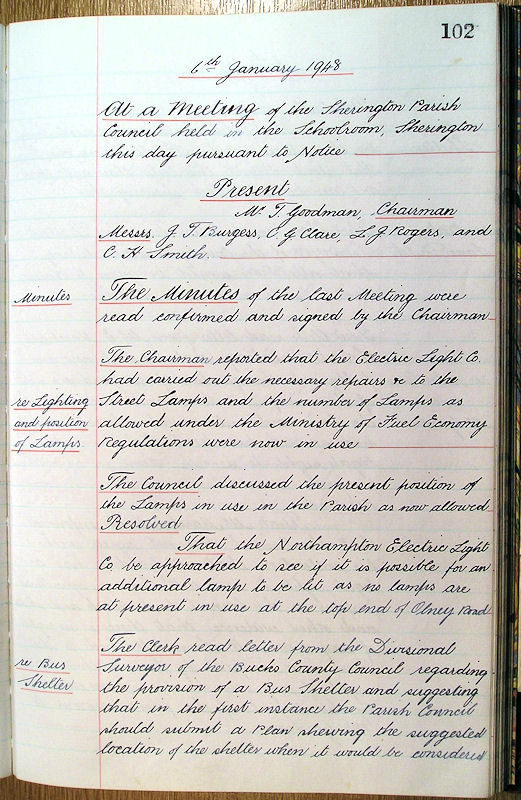 102
6th January 1948
At a Meeting of the Sherington Parish
Council held in the Schoolroom, Sherington
this day pursuant to Notice
Present
Mr T. Goodman, Chairman
Messrs. J. T. Burgess, C. G. Clare, L. J. Rogers, and
C. H. Smith.
Minutes
The Minutes of the last Meeting were
read confirmed and signed by the Chairman
The Chairman reported that the Electric Light Co.
had carried out the necessary repairs &c to the
re Lighting
Street Lamps and the number of Lamps as
and position
allowed under the Ministry of Fuel Economy
of Lamps.
Regulations were now in use
The Council discussed the present position of
the Lamps in use in the Parish as now allowed
Resolved
That the Northampton Electric Light
Co be approached to see if it is possible for an
additional lamp to be lit as no lamps are
at present in use at the top end of Olney Road
The Clerk read letter from the Divisional
re Bus
Surveyor of the Bucks County Council regarding
Shelter
the provision of a Bus Shelter and suggesting
that in the first instance the Parish Council
should submit a Plan shewing the suggested
location of the shelter when it would be considered